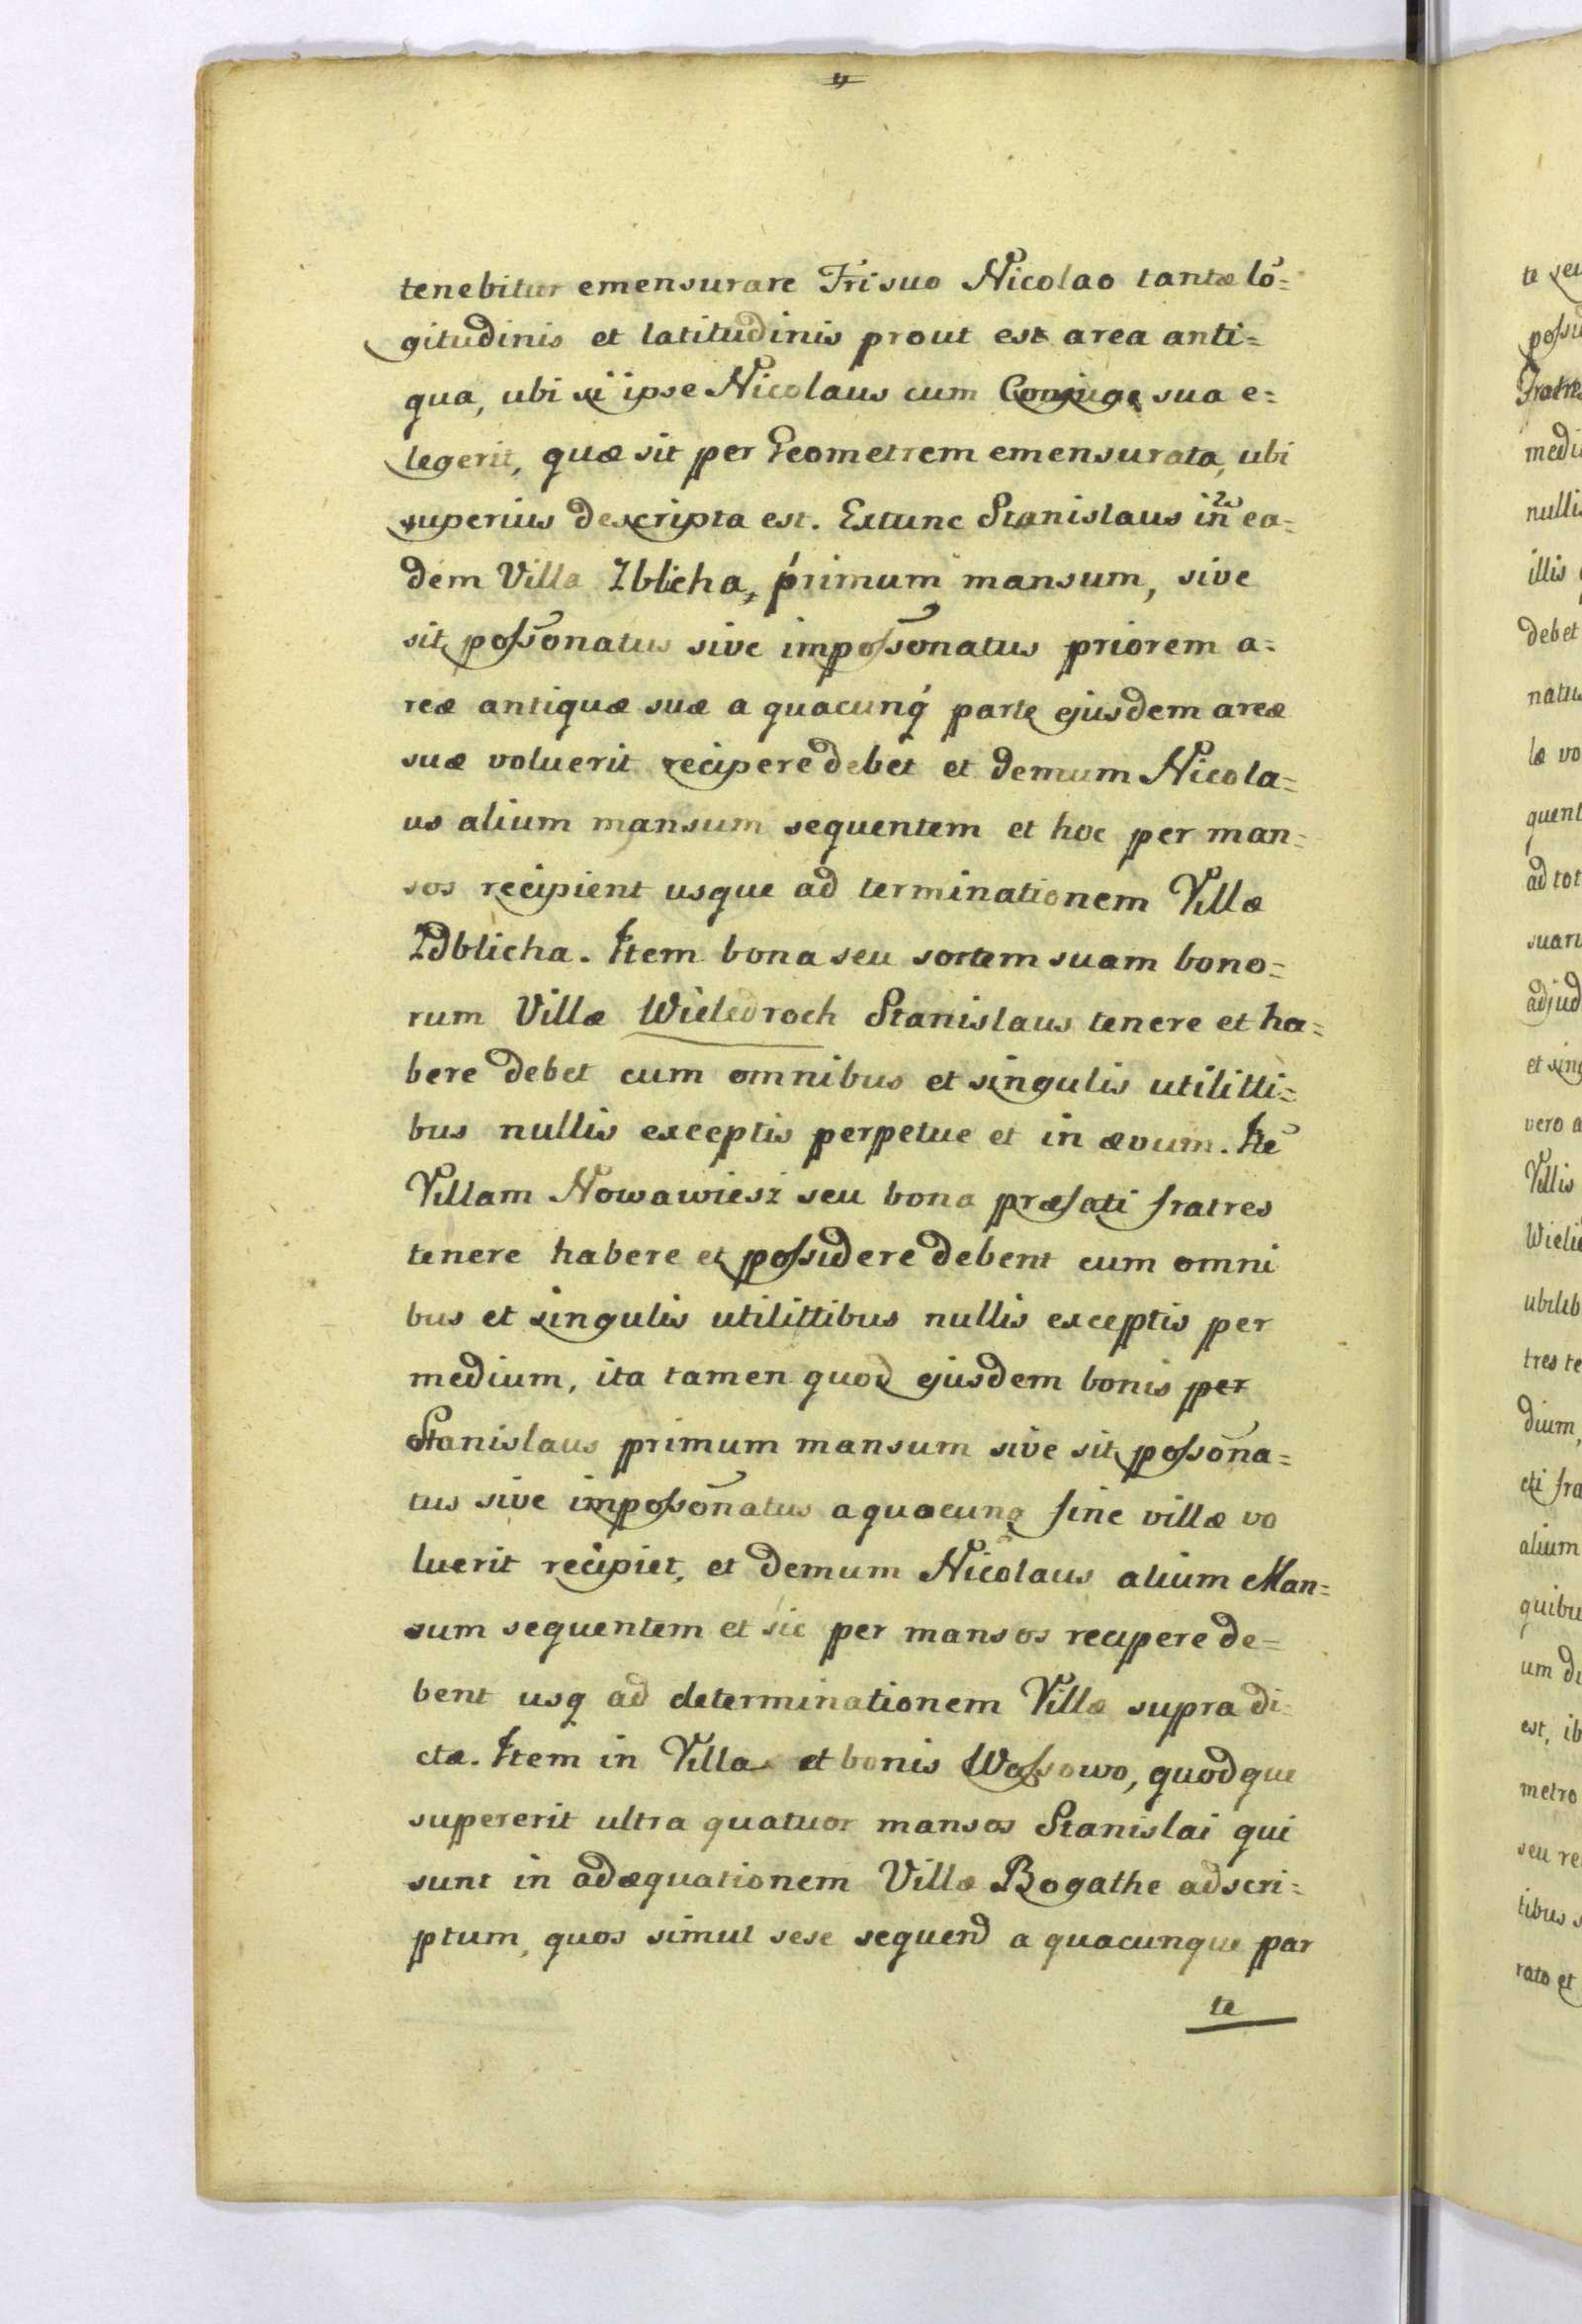 tenebitur emensurare Fri suo Nicolao tantæ lō=
gitudinis et latitudinis prout est area anti=
qua, ubi si ipse Nicolaus cum Conjuge sua e=
legerit, quæ sit per Geometrem emensurata, ubi
superius descripta est. Extunc Stanislaus in ea=
dem Villa Zblicha, primum mansum, sive
sit possōnatus sive impossōnatus priorem a=
reæ antiquæ suæ a quacunq́ parte ejusdem areæ
suæ voluerit recipere debet et demum Nicola=
us alium mansum sequentem et hoc per man=
sos recipient usque ad terminationem Villæ
Zdblicha. Item bona seu sortem suam bono=
rum Villæ Wieledroch Stanislaus tenere et ha=
bere debet cum omnibus et singulis utilitti=
bus nullis exceptis perpetue et in ævum. Itē
Villam Nowawiesz seu bona præfati fratres
tenere habere et possidere debent cum omni
bus et singulis utilittibus nullis exceptis per
medium, ita tamen quod ejusdem bonis per
Stanislaus primum mansum sive sit possōna=
tus sive impossōnatus a quacunq fine villæ vo
luerit recipiet, et demum Nicolaus alium Man=
sum sequentem et sic per mansos recipere de=
bent usq ad determinationem Villæ supra di=
ctæ. Item in Villa et bonis Wassowo, quodque
supererit ultra quatuor mansos Stanislai qui
sunt in adæquationem Villæ Bogathe adscri=
ptum, quos simul sese sequend a quacunque par
te